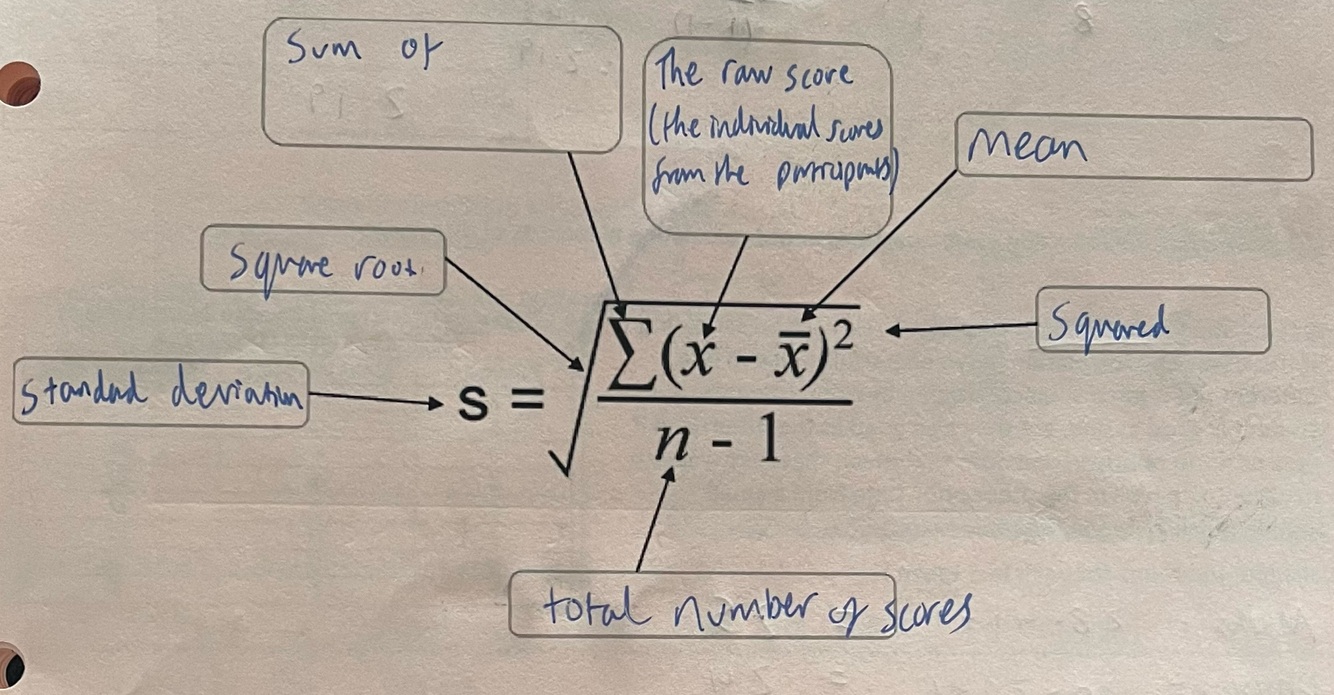 Sum of
The raw score
(the individual scores
from the participants)
Mean
Square root.
Squared
Standard deviation
s = √ ∑(x - x̄)²
n - 1
total number of scores